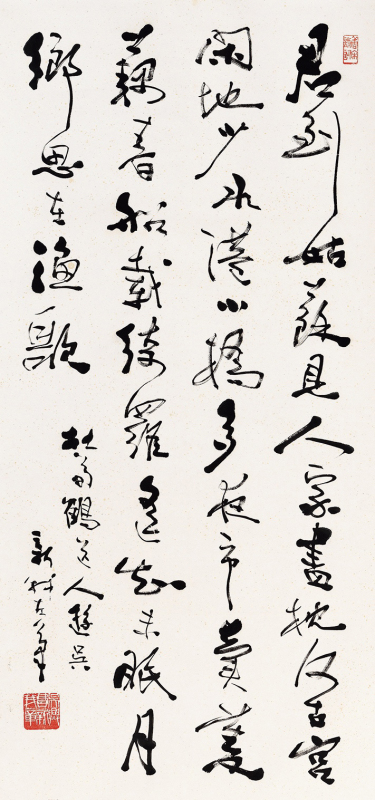 君到姑蘇見人家盡枕河古宮
閑地少水港小橋多夜市賣菱
藕春船載綺羅遙知未眠月
鄉思在漁歌
杜荀鶴送人遊吳
新我左筆